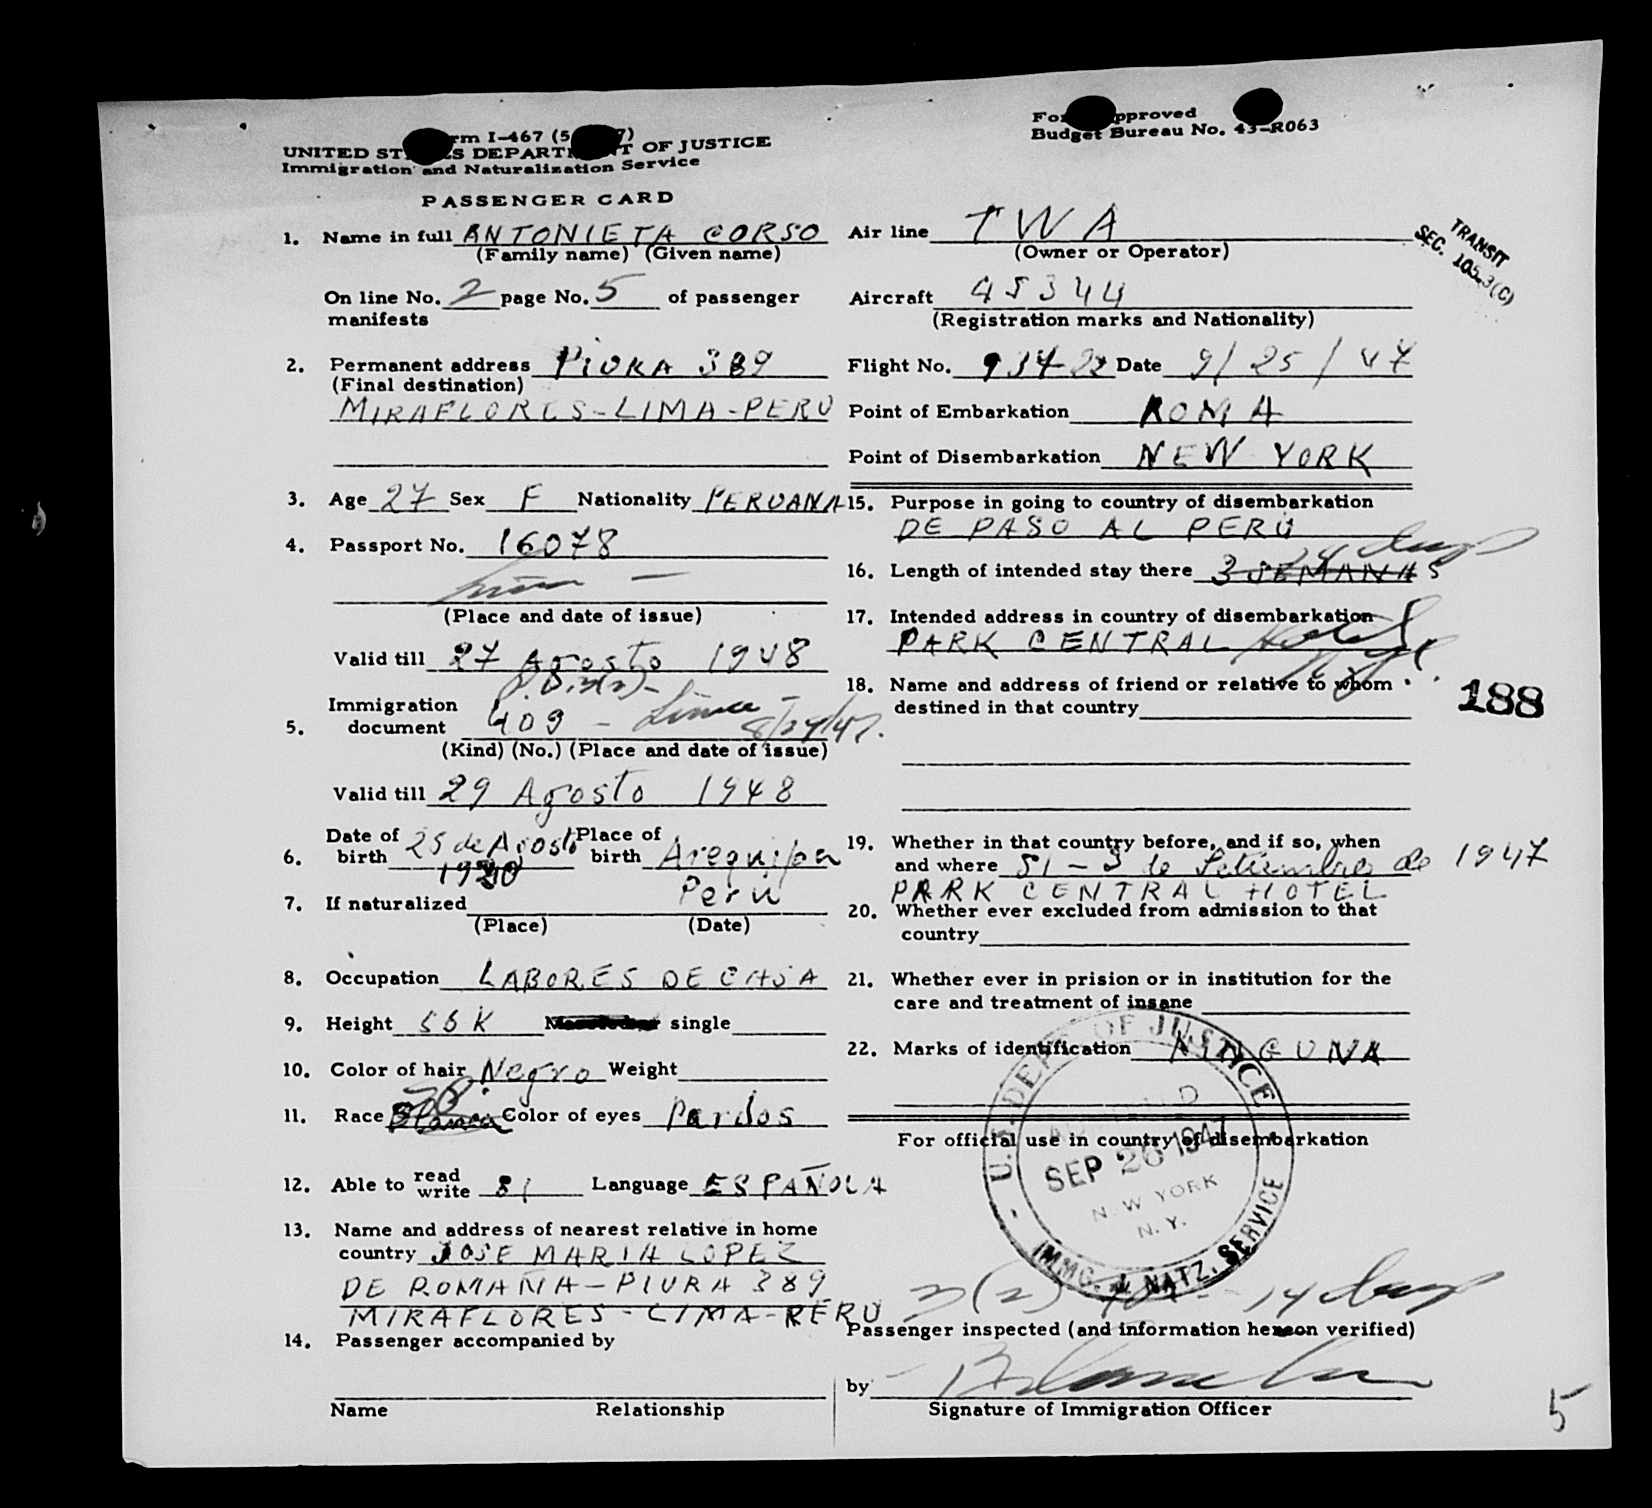 Form I-467
UNITED STATES DEPARTMENT OF JUSTICE
Immigration and Naturalization Service
PASSENGER CARD
1. Name in full ANTONIETA CORSO
(Family name) (Given name)
On line No. 2 page No. 5 of passenger
manifests
2. Permanent address PIURA 389
(Final destination)
MIRAFLORES-LIMA-PERU
3. Age 27 Sex F Nationality PERUANA
4. Passport No. 16078
Lima -
(Place and date of issue)
Valid till 27 Agosto 1948
Immigration
5. document 409 - Lima - 8/29/47.
(Kind) (No.) (Place and date of issue)
Valid till 29 Agosto 1948
6. Date of birth 25 de Agosto 1920 Place of birth Arequipa
Perú
7. If naturalized
(Place) (Date)
8. Occupation LABORES DE CASA
9. Height 56 K single
10. Color of hair Negro Weight
11. Race Blanca Color of eyes Pardos
12. Able to read write SI Language ESPAÑOLA
13. Name and address of nearest relative in home
country JOSE MARIA LOPEZ
DE ROMAÑA-PIURA 389
MIRAFLORES-LIMA-PERU
14. Passenger accompanied by
Name Relationship
Form Approved
Budget Bureau No. 43-R063
Air line TWA
(Owner or Operator)
TRANSIT
SEC. 105.3(C)
Aircraft 45344
(Registration marks and Nationality)
Flight No. 934-22 Date 9/25/47
Point of Embarkation ROMA
Point of Disembarkation NEW YORK
15. Purpose in going to country of disembarkation
DE PASO AL PERU
14 days
16. Length of intended stay there 3 SEMANAS
17. Intended address in country of disembarkation
PARK CENTRAL Hotel
N.Y.C.
18. Name and address of friend or relative to whom
destined in that country
188
19. Whether in that country before, and if so, when
and where SI - 3 de Setiembre de 1947
PARK CENTRAL HOTEL
20. Whether ever excluded from admission to that
country
21. Whether ever in prision or in institution for the
care and treatment of insane
22. Marks of identification NINGUNA
For official use in country of disembarkation
U.S. DEPT. OF JUSTICE
ADMITTED
SEP 26 1947
NEW YORK
N.Y.
IMMG. & NATZ. SERVICE
3(2) 14 days
Passenger inspected (and information hereon verified)
by
Signature of Immigration Officer
5